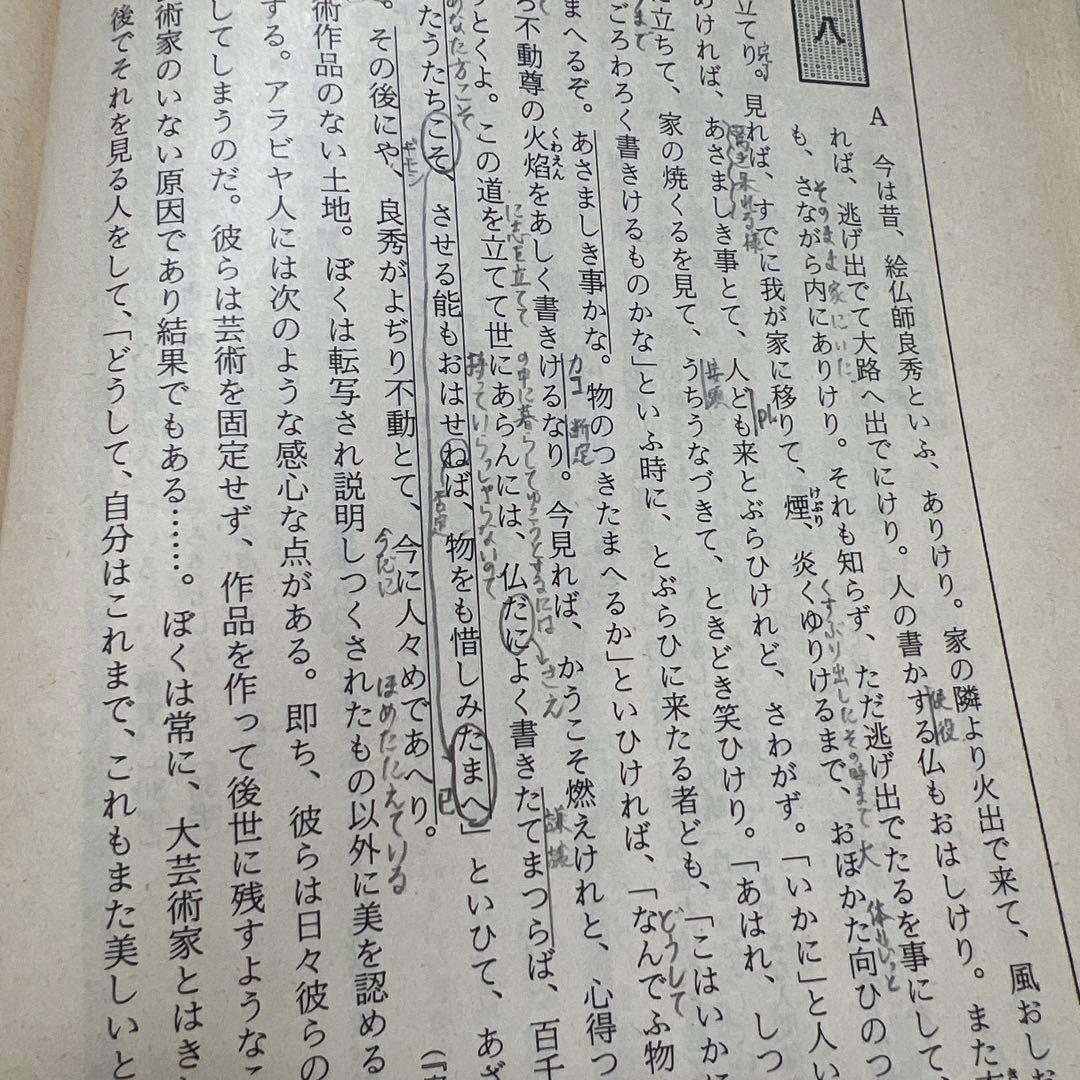 八
A　今は昔、絵仏師良秀といふ、ありけり。家の隣より火出で来て、風おしお
れば、逃げ出でて大路へ出でにけり。人の書かする仏もおはしけり。また
使役
も、さながら内にありけり。それも知らず、ただ逃げ出でたるを事にして、
そのまま家にいた
立てり。見れば、すでに我が家に移りて、煙、炎くゆりけるまで、おほかた向ひのつ
けぶり
くすぶり出したその時まで
大体じっと
あければ、あさましき事とて、人ども来とぶらひけれど、さわがず。「いかに」と人い
pl
に立ちて、家の焼くるを見て、うちうなづきて、ときどき笑ひけり。「あはれ、しつ
ごろわろく書きけるものかな」といふ時に、とぶらひに来たる者ども、「こはいかに
まへるぞ。あさましき事かな。物のつきたまへるか」といひければ、「なんでふ物
どうして
ろ不動尊の火焔をあしく書きけるなり。今見れば、かうこそ燃えけれと、心得つ
くわえん
カコ 断定
うとくよ。この道を立てて世にあらんには、仏だによく書きたてまつらば、百千
に志を立てて
の中に暮らしてゆこうとするには
さえ
謙譲
たうたちこそ、させる能もおはせねば、物をも惜しみたまへ」といひて、あざ
あなた方こそ
持っていらっしゃらないので
否定
已
。その後にや、良秀がよぢり不動とて、今に人々めであへり。
ギモン
今だに
ほめたたえている
術作品のない土地。ぼくは転写され説明しつくされたもの以外に美を認める
する。アラビヤ人には次のような感心な点がある。即ち、彼らは日々彼らの
してしまうのだ。彼らは芸術を固定せず、作品を作って後世に残すようなこ
術家のいない原因であり結果でもある……。ぼくは常に、大芸術家とはき
後でそれを見る人をして、「どうして、自分はこれまで、これもまた美しいと